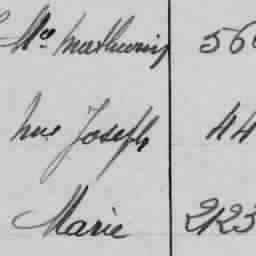 Mce Mathurin 56
hue Joseph 44
Marie 2123